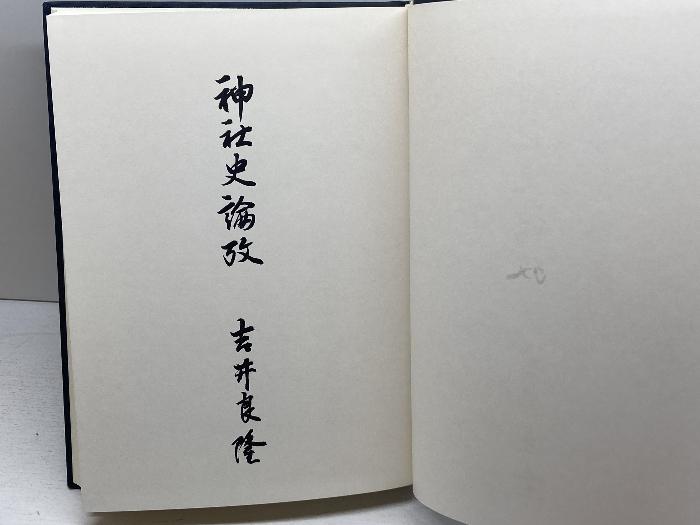 神社史論攷
吉井良隆